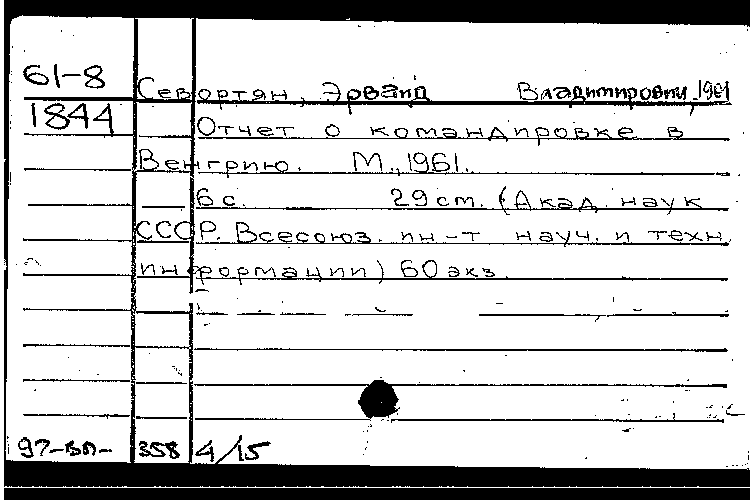 61-8
Севортян, Эрванд Владимирович, 1901
1844
Отчет о командировке в
Венгрию. М., 1961.
6 с. 29 см. (Акад. наук
СССР. Всесоюз. ин-т науч. и техн.
информации) 60 экз.
97-ВП- 358 4/15